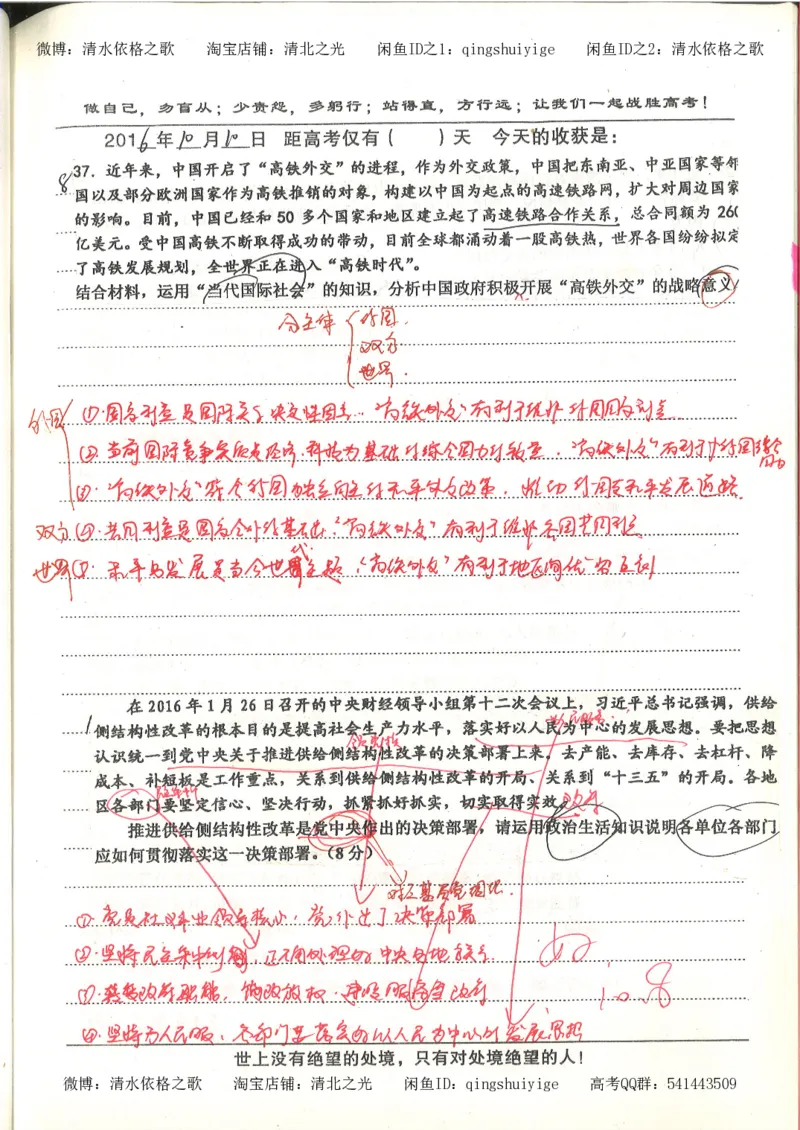 微博：清水依格之歌 淘宝店铺：清北之光 闲鱼ID之1：qingshuiyige 闲鱼ID之2：清水依格之歌
做自己，勿盲从；少责怨，多躬行；站得直，方行远；让我们一起战胜高考！
2016年10月10日 距高考仅有（ ）天 今天的收获是：
8
37．近年来，中国开启了“高铁外交”的进程，作为外交政策，中国把东南亚、中亚国家等邻
国以及部分欧洲国家作为高铁推销的对象，构建以中国为起点的高速铁路网，扩大对周边国家
的影响。目前，中国已经和50多个国家和地区建立起了高速铁路合作关系，总合同额为260
亿美元。受中国高铁不断取得成功的带动，目前全球都涌动着一股高铁热，世界各国纷纷拟定
了高铁发展规划，全世界正在进入“高铁时代”。
结合材料，运用“当代国际社会”的知识，分析中国政府积极开展“高铁外交”的战略意义
分主体
双方
世界
①国家利益是国际关系决定性因素．“高铁外交”有利于维护对国国家利益
②当前国际竞争实质是经济．科技为基础的综合国力的较量．“高铁外交”有利于
③“高铁外交”我国独立自主的和平外交政策，
双方④共同利益是国家合作的基础，“高铁外交”有利于维护各国共同利益
世界⑤和平与发展是当今时代主题，“高铁外交”有利于地区间优劣互利
在2016年1月26日召开的中央财经领导小组第十二次会议上，习近平总书记强调，供给
侧结构性改革的根本目的是提高社会生产力水平，落实好以人民为中心的发展思想。要把思想
认识统一到党中央关于推进供给侧结构性改革的决策部署上来。去产能、去库存、去杠杆、降
成本、补短板是工作重点，关系到供给侧结构性改革的开局、关系到“十三五”的开局。各地
区各部门要坚定信心、坚决行动，抓紧抓好抓实，切实取得实效。
推进供给侧结构性改革是党中央作出的决策部署，请运用政治生活知识说明各单位各部门
应如何贯彻落实这一决策部署。（8分）
①党是社会主义事业领导核心，党作出了决策部署
②坚持民主集中制，正确处理好中央与地方关系
③转变政府职能，简政放权．建设服务型政府
④坚持为人民服务，各部门要落实好以人民为中心的发展思想
10.8
世上没有绝望的处境，只有对处境绝望的人！
微博：清水依格之歌 淘宝店铺：清北之光 闲鱼ID：qingshuiyige 高考QQ群：541443509